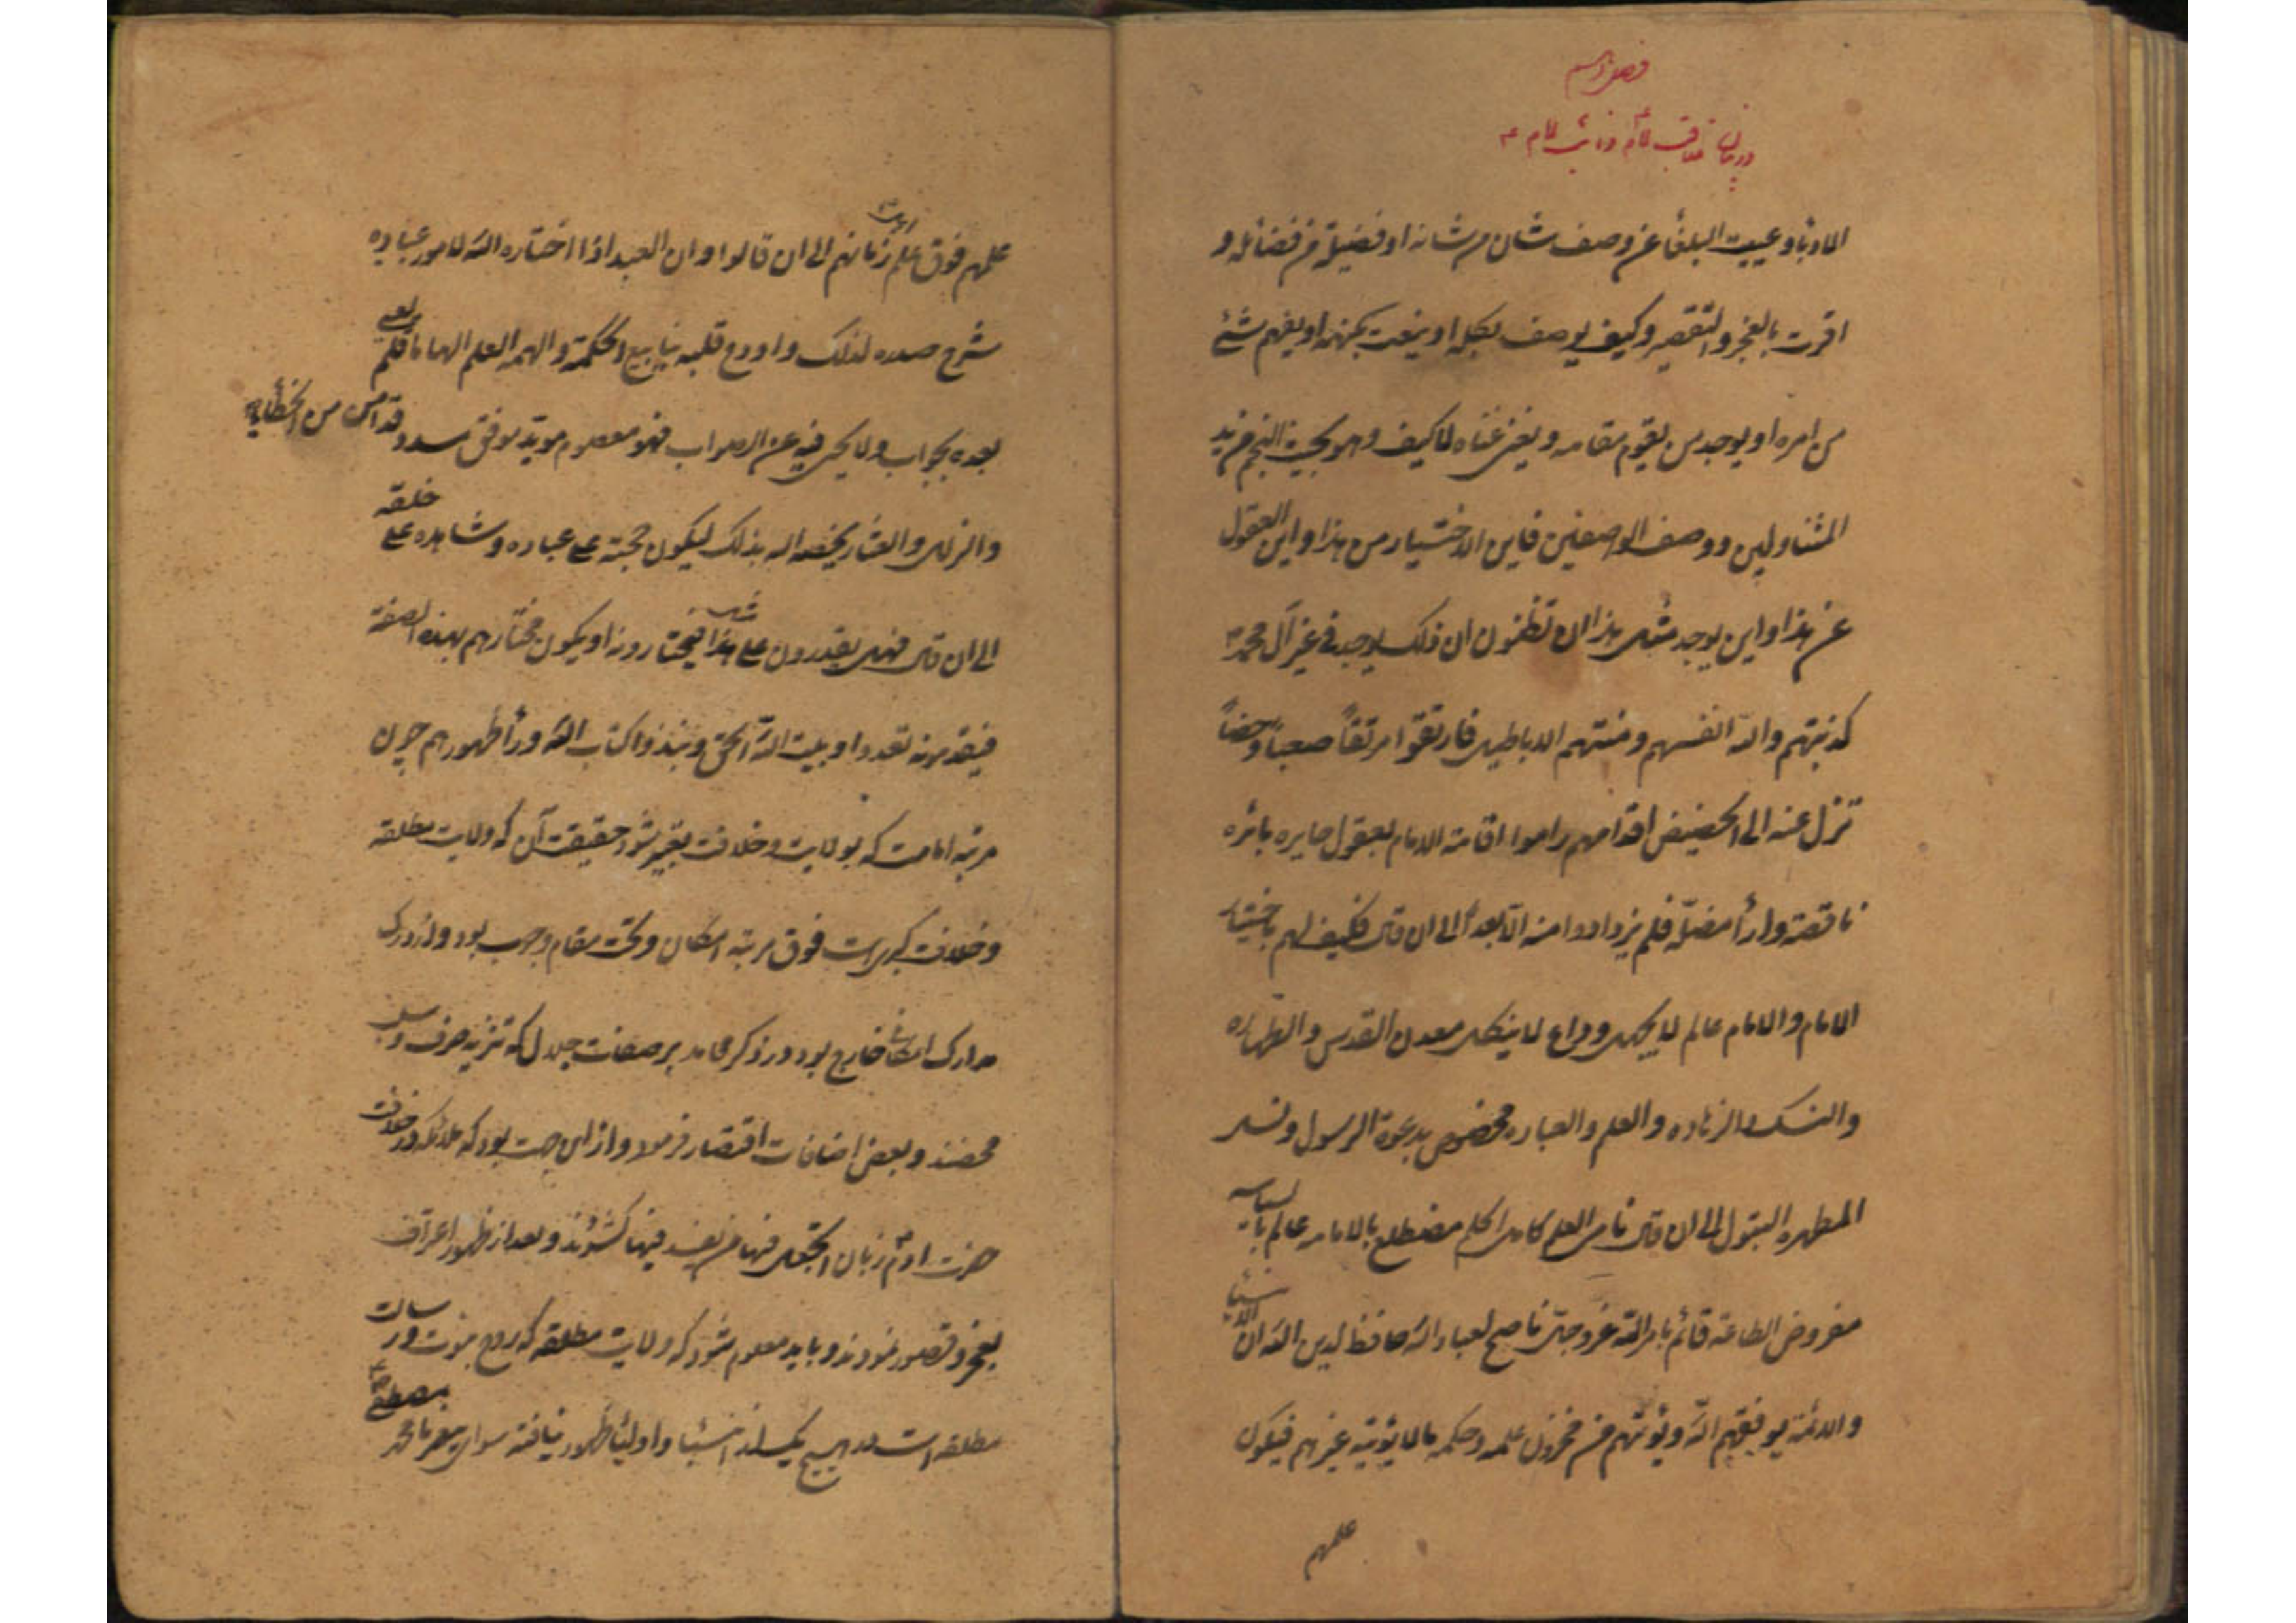 الادباء و عییت البلغأ عن وصف شان من شانه او فضیلة من فضائله و
اقرت بالعجز و التقصیر و کیف یوصف بکله او ینعت بکنهه او یفهم شئ
من امره او یوجد من یقوم مقامه و یغنی غناه لا کیف و هو بحیث النجم من ید
المتناولین و وصف الواصفین فاین الاختیار من هذا و این العقول
عن هذا و این یوجد مثل هذا ان تظنون ان ذلک یوجد فی غیر آل محمد
کذبتهم والله انفسهم و منتهم الاباطیل فارتقوا مرتقاً صعباً دحضاً
تزل عنه الی الحضیض اقدامهم راموا اقامة الامام بعقول حایره بائره
ناقصة و ارأ مضلّه فلم یزدادوا منه الّا بعداً الی ان قال فکیف لهم باختیار
الامام و الامام عالم لا یجهل و داع لا ینکل معدن القدس و الطهاره
و النسک و الزهاده و العلم و العباده مخصوص بدعوة الرسول و نسل
المطهره البتول الی ان قال نامی العلم کامل الحلم مضطلع بالامامه عالم بالسیاسه
مفروض الطاعه قائم بامر الله عز و جل ناصح لعباد الله حافظ لدین الله ان الانبیا
و الائمه یوفقهم الله و یؤتهم من مخزون علمه و حکمه ما لا یؤتیه غیرهم فیکون
علمهم
علمهم فوق علم زمانهم الی ان قالوا و ان العبد اذا اختاره الله لامور عباده
شرح صدره لذلک و اودع قلبه ینابیع الحکمة و الهمه العلم الهاما فلم یعی
بعده بجواب و لا یحیر فیه عن الصواب فهو معصوم موید موفق مسدد قد امن من الخطایا
و الزلل و العثار یخصه الله بذلک لیکون حجته علی عباده و شاهده علی خلقه
الی ان قال فهل یقدرون علی مثل هذا فیختارونه او یکون مختارهم بهذه الصفة
فیقدمونه تعدوا و بیت الله الحق و نبذوا کتاب الله ورأ ظهورهم چون
مرتبه امامت که بولایت و خلافت تعبیر شود حقیقت آن که ولایت مطلقه
و خلافت کبری است فوق مرتبه امکان و تحت مقام وجوب بود و از درک
مدارک امکانی خارج بود در ذکر محامد بر صفات جلال که تنزیه صرف و سلب
محضند و بعض اضافات اقتصار فرمود و از این جهت بود که ملائکه در خلافت
حضرت ادم زبان اتجعل فیها من یفسد فیها کشودند و بعد از ظهور اعتراف
بعجز و قصور نمودند و باید معلوم شود که ولایت مطلقه که روح نبوت و رسالت
مطلقه است در هیچ یک از انبیا و اولیأ ظهور نیافته سوای پیغمبر ما محمد مصطفی